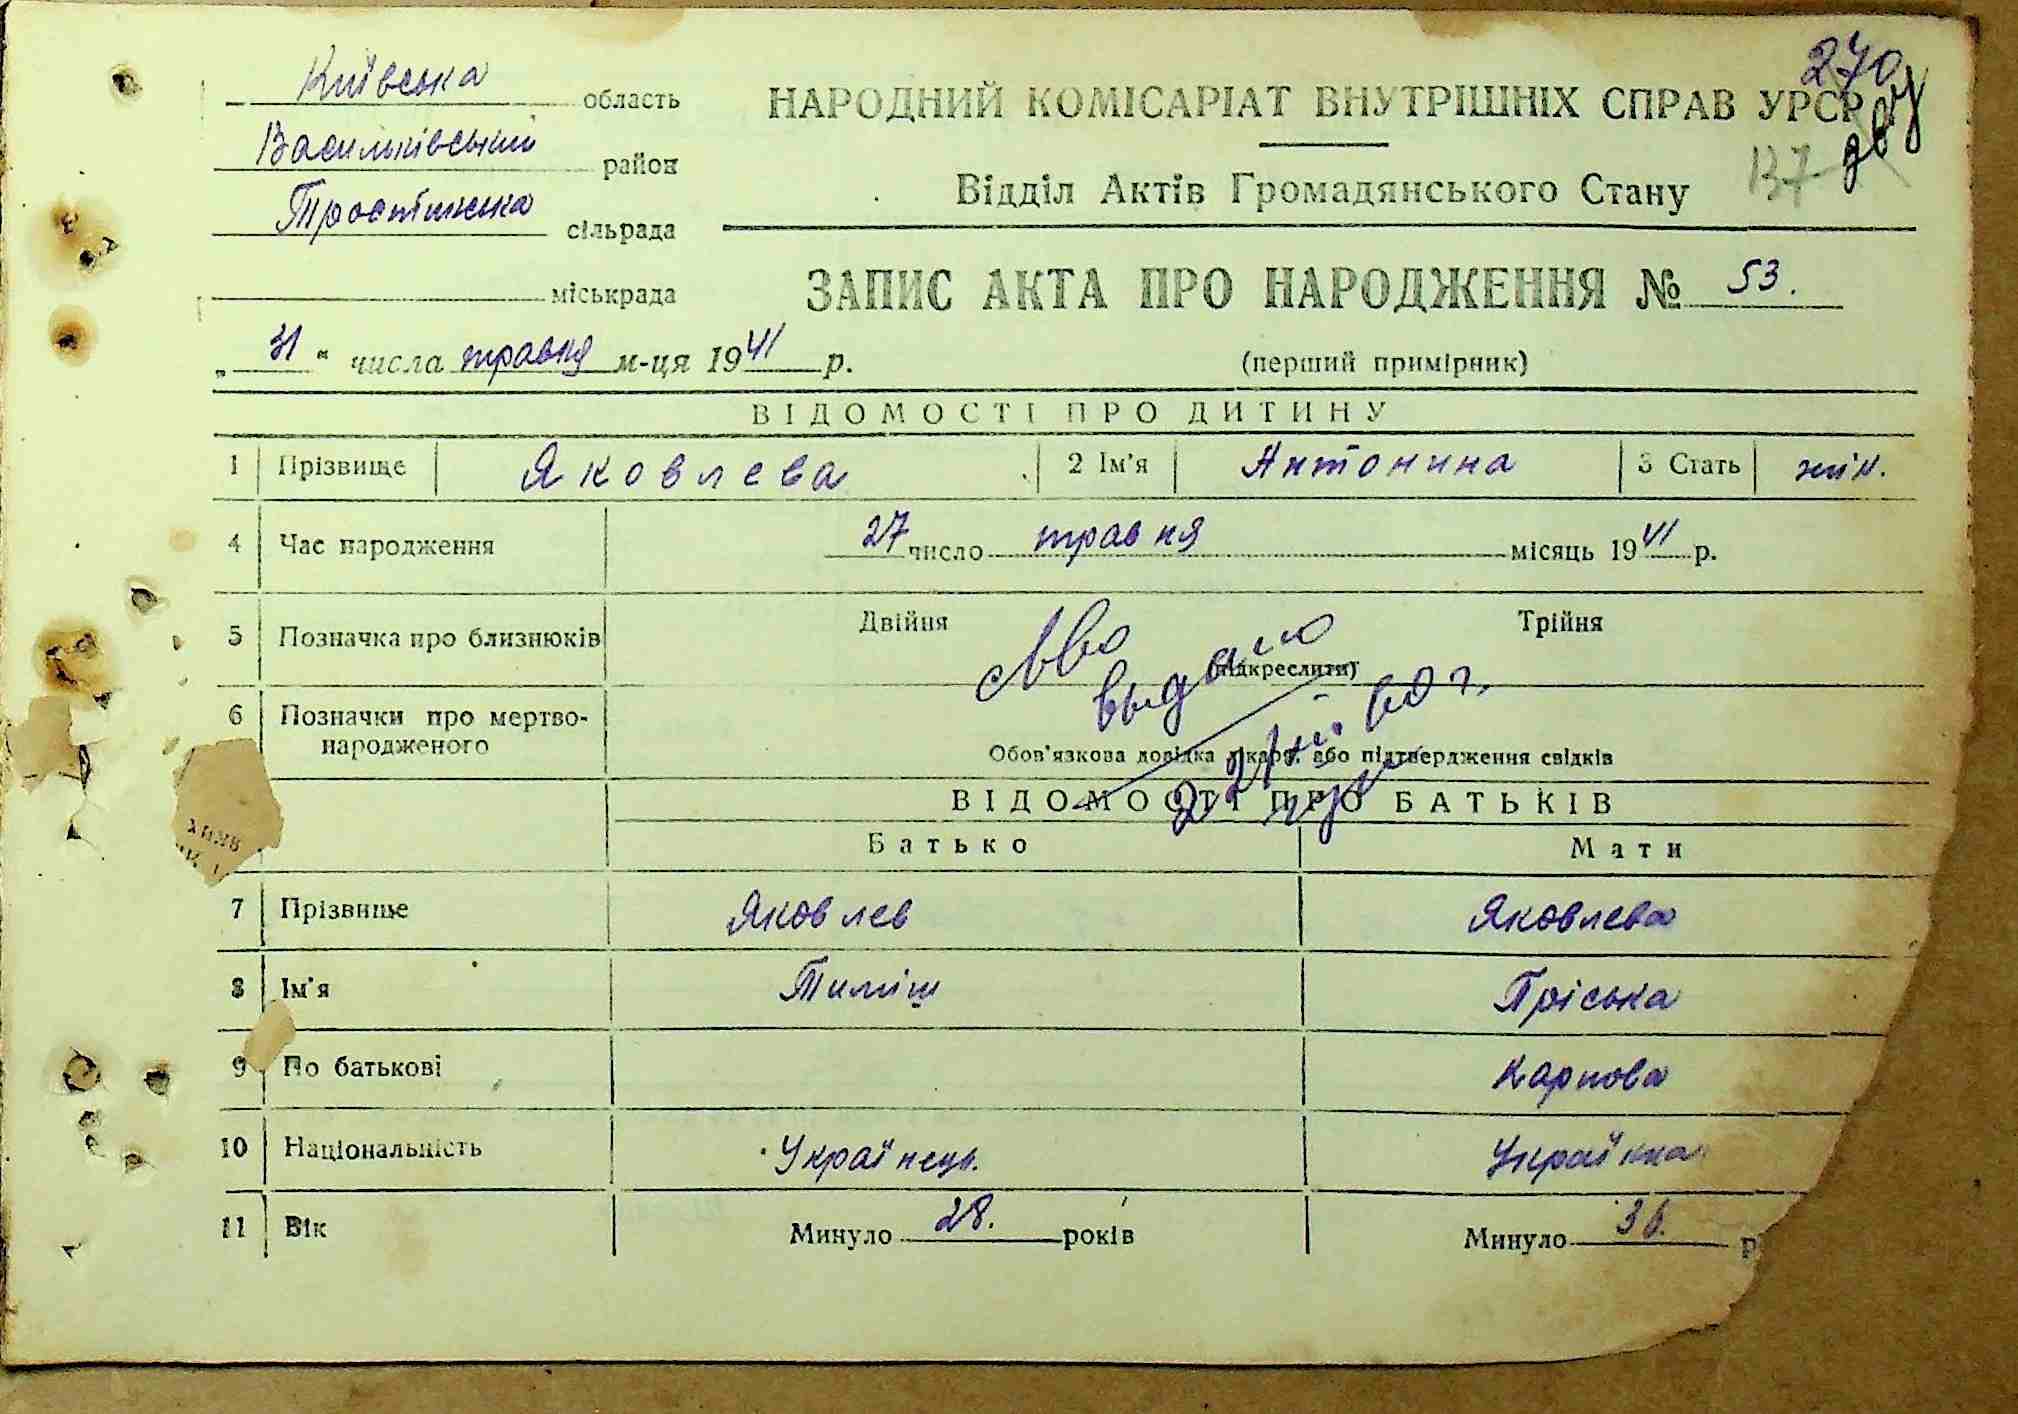 Київська область
Васильківський район
Тростинська сільрада
міськрада
270
137
НАРОДНИЙ КОМІСАРІАТ ВНУТРІШНІХ СПРАВ УРСР
Відділ Актів Громадянського Стану
ЗАПИС АКТА ПРО НАРОДЖЕННЯ № 53.
„31“ числа травня м-ця 1941 р.
(перший примірник)
ВІДОМОСТІ ПРО ДИТИНУ
1 Прізвище Яковлева 2 Ім'я Антонина 3 Стать жін.
4 Час народження 27 число травня місяць 1941 р.
5 Позначка про близнюків Двійня Трійня
(підкреслити)
выдано
60 г.
6 Позначки про мертво-
народженого
Обов'язкова довідка лікаря або підтвердження свідків
ВІДОМОСТІ ПРО БАТЬКІВ
Батько Мати
7 Прізвище Яковлев Яковлева
8 Ім'я Тиміш Пріська
9 По батькові Карпова
10 Національність Українець. Українка
11 Вік Минуло 28. років Минуло 36. р